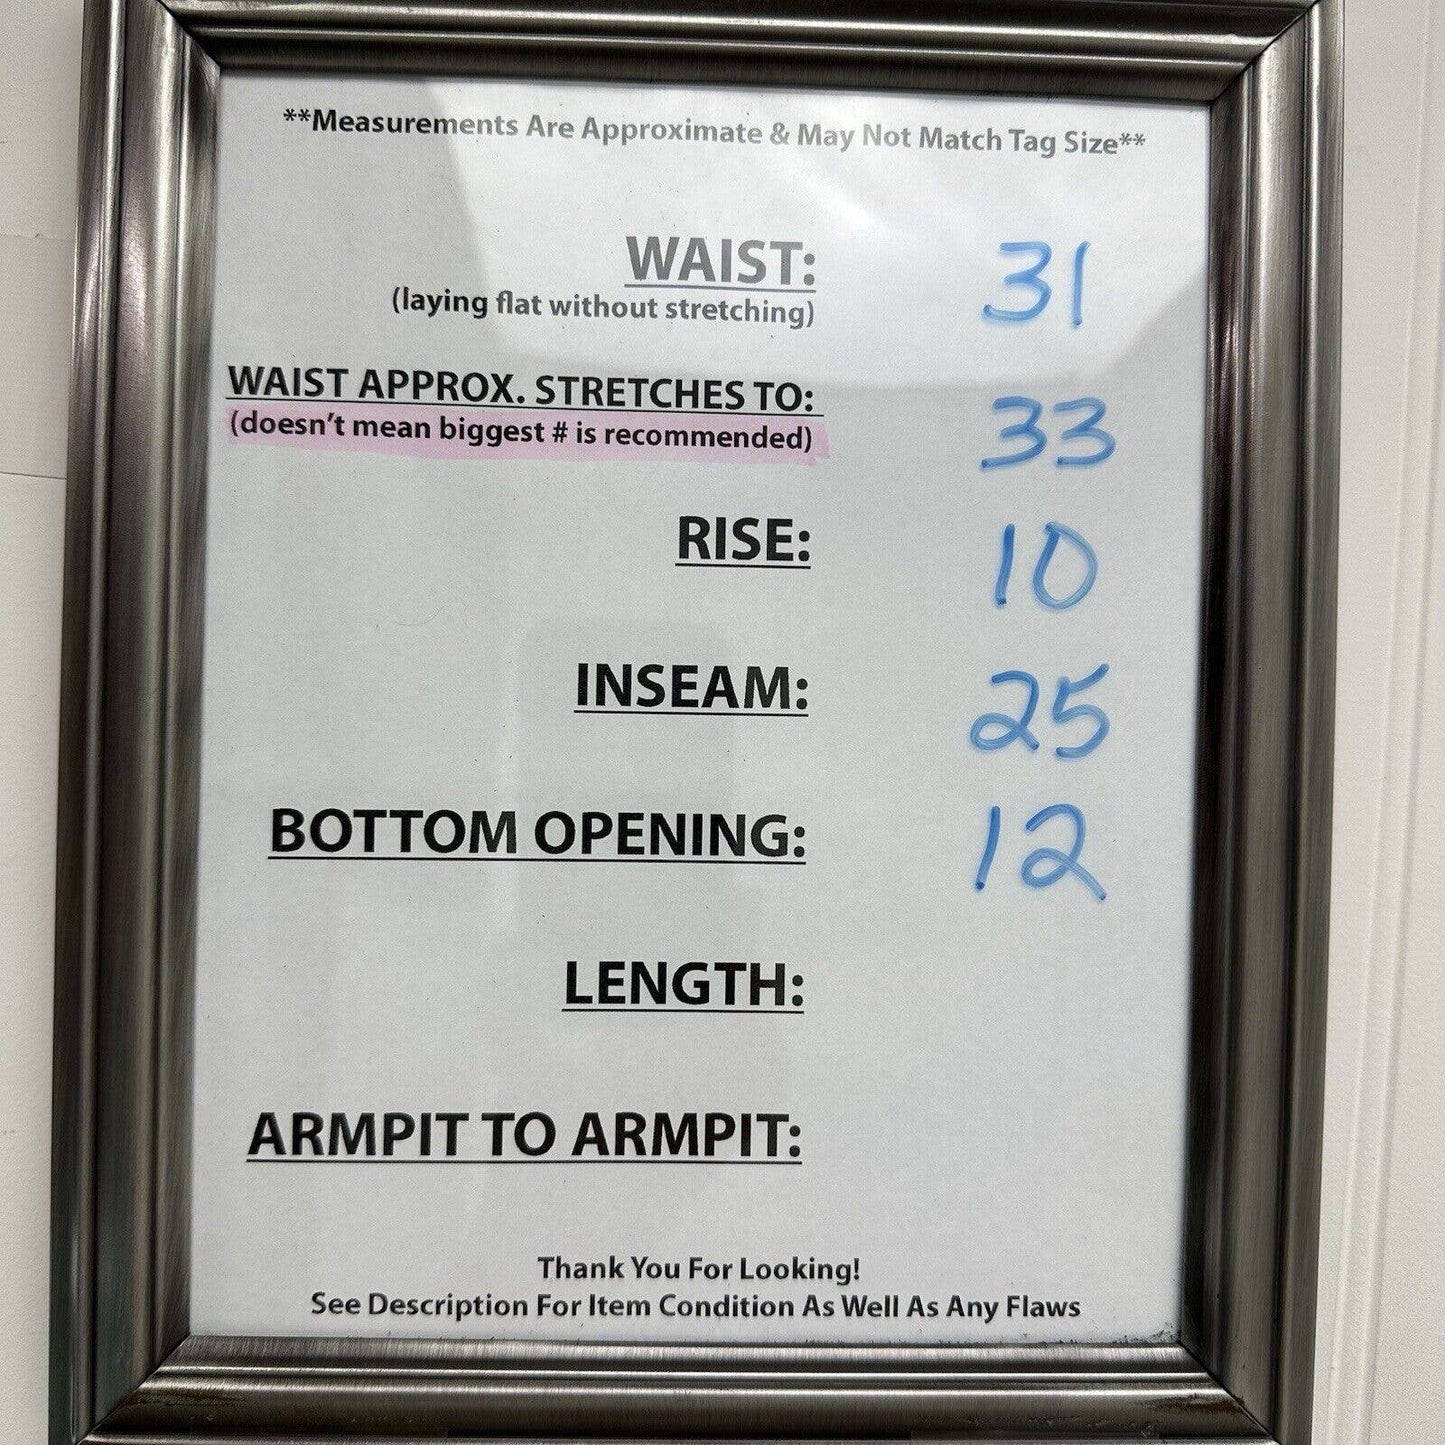 **Measurements Are Approximate & May Not Match Tag Size**
WAIST: 31
(laying flat without stretching)
WAIST APPROX. STRETCHES TO: 33
(doesn't mean biggest # is recommended)
RISE: 10
INSEAM: 25
BOTTOM OPENING: 12
LENGTH:
ARMPIT TO ARMPIT:
Thank You For Looking!
See Description For Item Condition As Well As Any Flaws